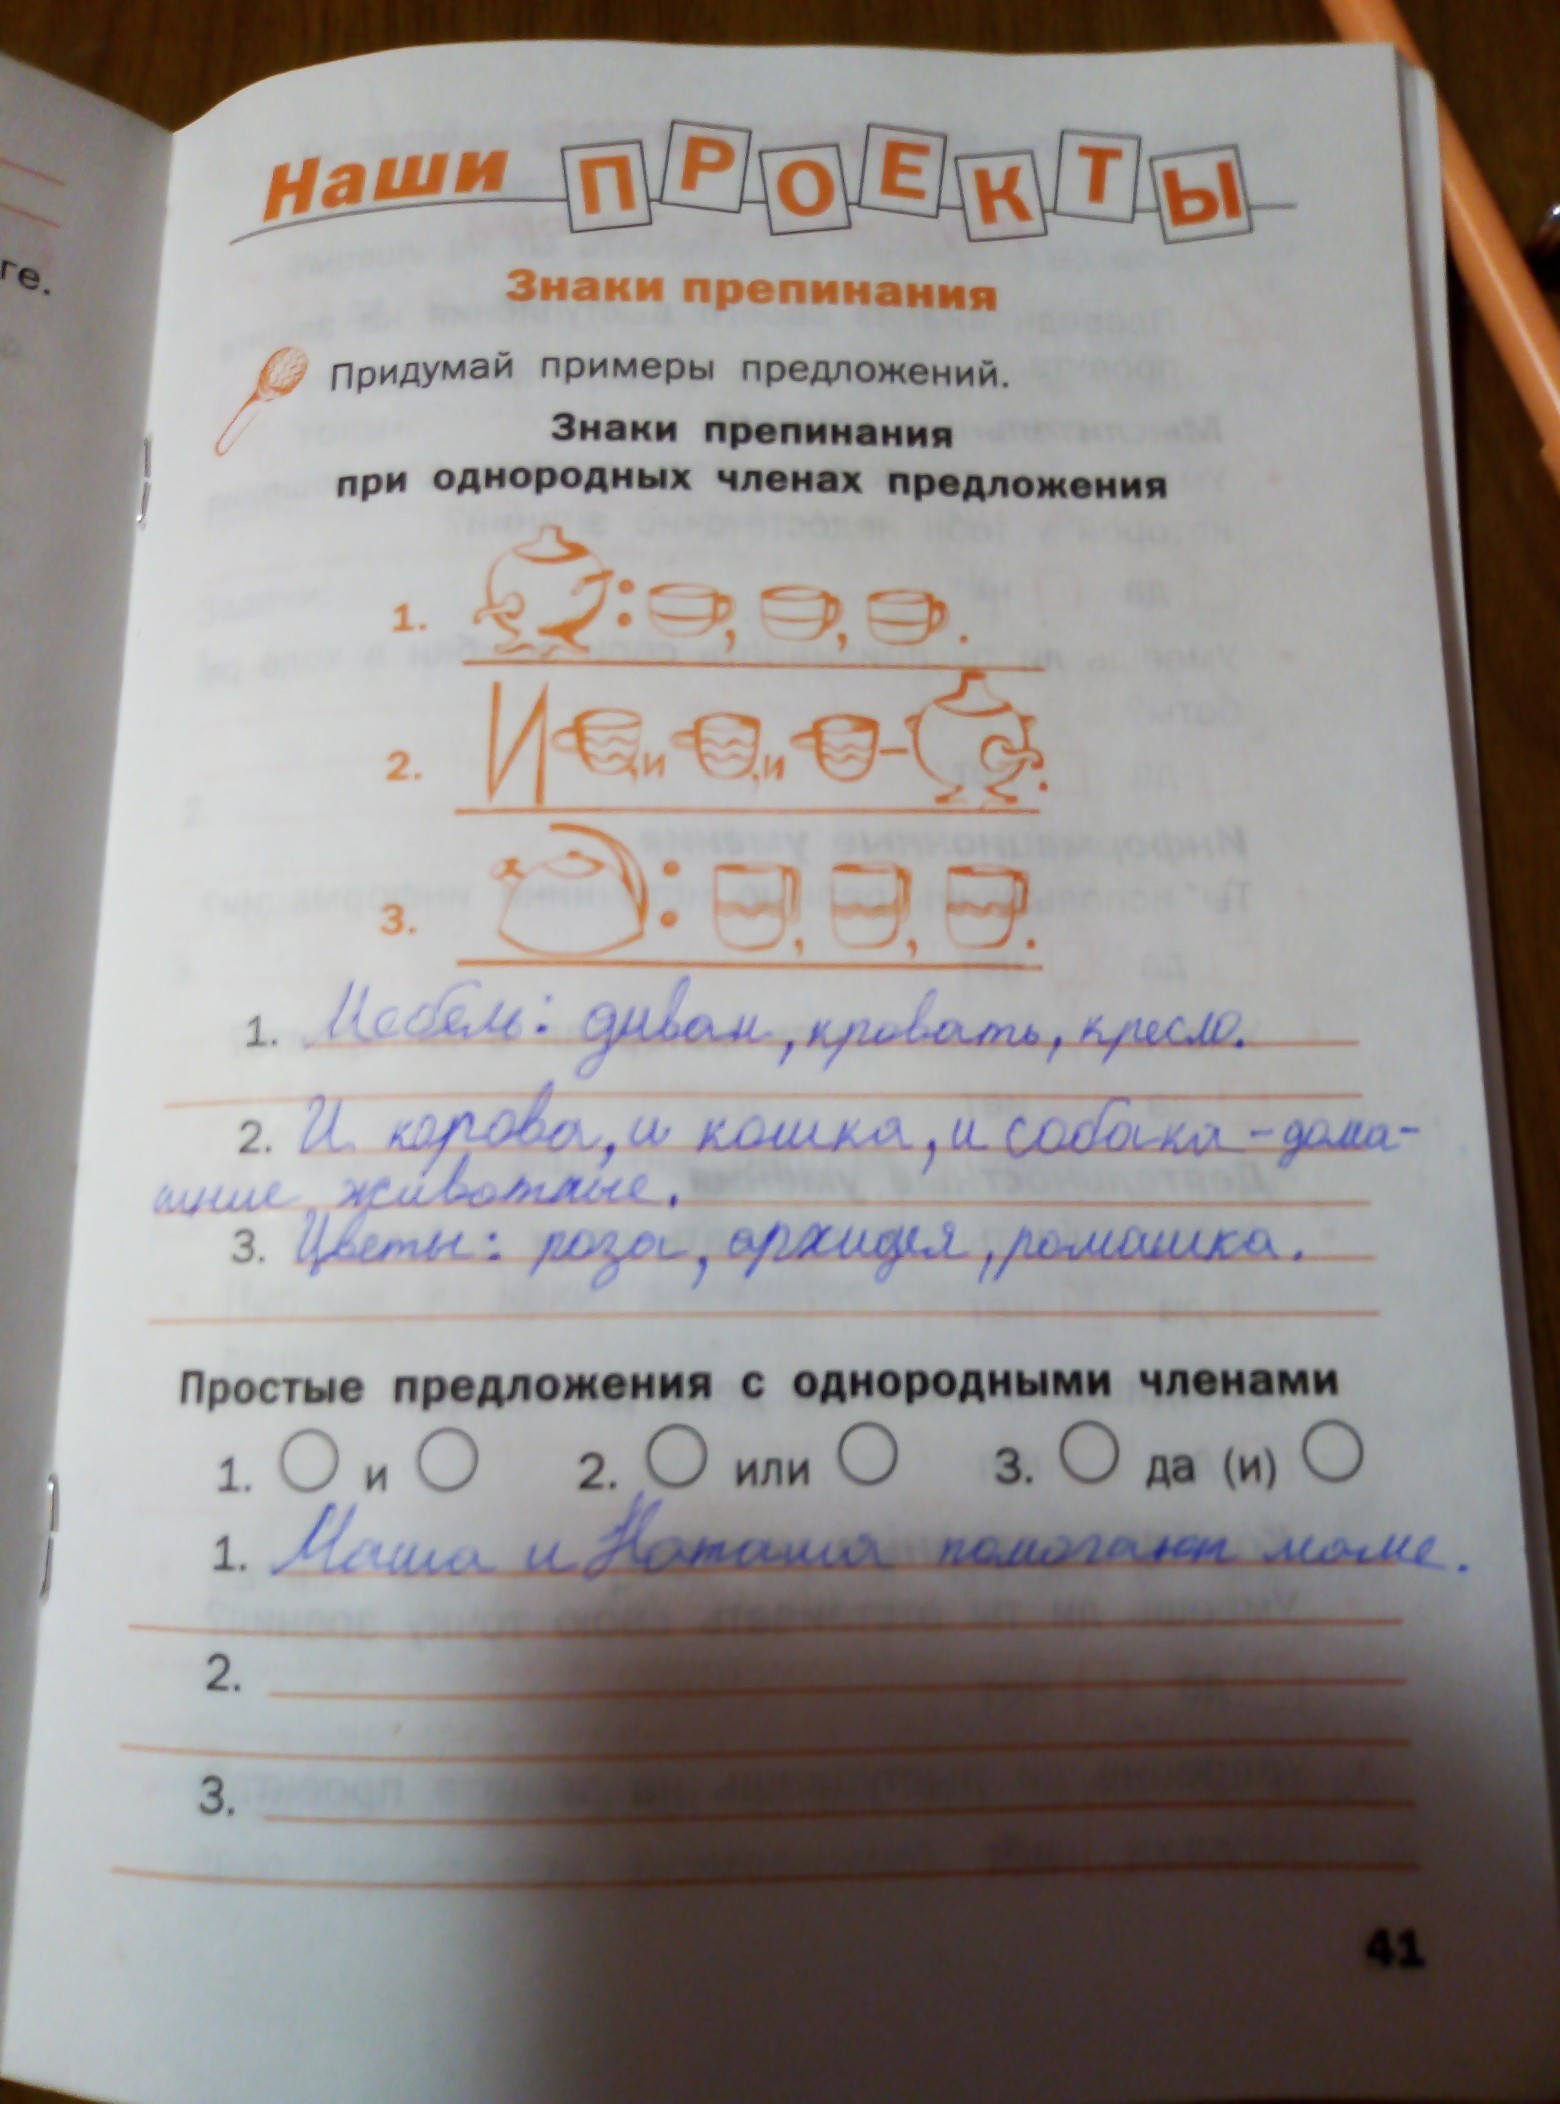 ге.
Наши ПРОЕКТЫ
Знаки препинания
Придумай примеры предложений.
Знаки препинания
при однородных членах предложения
1. : , , .
2. И ,и ,и – .
3. : , , .
1. Мебель: диван, кровать, кресло.
2. И корова, и кошка, и собака – дома-
шние животные.
3. Цветы: роза, орхидея, ромашка.
Простые предложения с однородными членами
1. ◯ и ◯ 2. ◯ или ◯ 3. ◯ да (и) ◯
1. Маша и Наташа помогают маме.
2.
3.
41